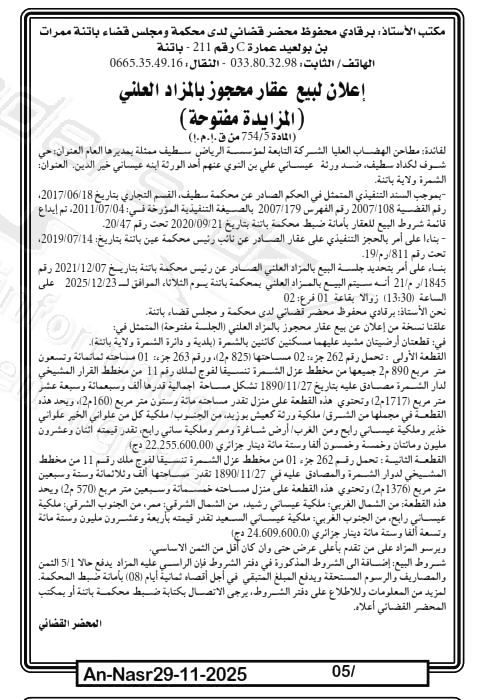 مكتب الأستاذ: برقادي محفوظ محضر قضائي لدى محكمة ومجلس قضاء باتنة ممرات
بن بولعيد عمارة C رقم 211 - باتنة
الهاتف/ الثابت: 033.80.32.98 - النقال: 0665.35.49.16
إعلان لبيع عقار محجوز بالمزاد العلني
(المزايدة مفتوحة)
(المادة 754/5 من ق.إ.م.إ)
لفائدة: مطاحن الهضاب العليا الشركة التابعة لمؤسسة الرياض سطيف ممثلة بمديرها العام العنوان: حي
شوف لكداد سطيف، ضد ورثة عيساني علي بن النوي عنهم أحد الورثة ابنه عيساني خير الدين. العنوان:
الشمرة ولاية باتنة.
-بموجب السند التنفيذي المتمثل في الحكم الصادر عن محكمة سطيف، القسم التجاري بتاريخ 2017/06/18،
رقم القضية 2007/108 رقم الفهرس 2007/179 بالصيغة التنفيذية المؤرخة في: 2011/07/04، تم إيداع
قائمة شروط البيع للعقار بأمانة ضبط محكمة باتنة بتاريخ 2020/09/21 تحت رقم 20/47.
- بناءا على أمر بالحجز التنفيذي على عقار الصادر عن نائب رئيس محكمة عين باتنة بتاريخ: 2019/07/14،
تحت رقم 811/رم/19.
بناء على أمر بتحديد جلسة البيع بالمزاد العلني الصادر عن رئيس محكمة باتنة بتاريخ 2021/12/07 رقم
1845/ر م/21 أنه سيتم البيع بالمزاد العلني بمحكمة باتنة يوم الثلاثاء الموافق لـ 2025/12/23 على
الساعة (13:30) زوالا بقاعة 01 فرع: 02
نحن الأستاذ: برقادي محفوظ محضر قضائي لدى محكمة و مجلس قضاء باتنة.
علقنا نسخة من إعلان عن بيع عقار محجوز بالمزاد العلني (الجلسة مفتوحة) المتمثل في:
في: قطعتان أرضيتان مشيد عليهما مسكنين كائنين بالشمرة (بلدية و دائرة الشمرة ولاية باتنة).
القطعة الأولى : تحمل رقم 262 جزء: 02 مساحتها (825 م2)، ورقم 263 جزء: 01 مساحته ثمانمائة وتسعون
متر مربع 890 م2 جميعها من مخطط عزل الشمرة تنسيقا لفوج لملك رقم 11 من مخطط القرار المشيخي
لدار الشمرة مصادق عليه بتاريخ 1890/11/27 تشكل مساحة اجمالية قدرها ألف وسبعمائة وسبعة عشر
متر مربع (1717م2) وتحتوي هذه القطعة على منزل تقدر مساحته مائة وستون متر مربع (160م2)، ويحد هذه
القطعة في مجملها من الشرق/ ملكية ورثة كعيش بوزيد، من الجنوب/ ملكية كل من علواني الخير علواني
خذير وملكية عيساني رابح ومن الغرب/ أرض شاغرة وممر وملكية ساتي رابح، تقدر قيمته اثنان وعشرون
مليون ومائتان وخمسة وخمسون ألفا وستة مائة دينار جزائري (22.255.600.00 دج)
القطعة الثانية : تحمل رقم 262 جزء 01 من مخطط عزل الشمرة تنسيقا لفوج ملك رقم 11 من مخطط
المشيخي لدوار الشمرة والمصادق عليه في 1890/11/27 تقدر مساحتها ألف وثلاثمائة وستة وسبعين
متر مربع (1376م2) وتحتوي هذه القطعة على منزل مساحته خمسمائة وسبعين متر مربع (570 م2) ويحد
هذه القطعة: من الشمال الغربي: ملكية عيساني رشيد، من الشمال الشرقي: ممر، من الجنوب الشرقي: ملكية
عيساني رابح، من الجنوب الغربي: ملكية عيساني السعيد تقدر قيمته بأربعة وعشرون مليون وستة مائة
وتسعة ألفا وستة مائة دينار جزائري (24.609.600.0 دج)
ويرسو المزاد على من تقدم بأعلى عرض حتى وان كان أقل من الثمن الاساسي.
شروط البيع: إضافة الى الشروط المذكورة في دفتر الشروط فإن الراسي عليه المزاد يدفع حالا 5/1 الثمن
والمصاريف والرسوم المستحقة ويدفع المبلغ المتبقي في أجل أقصاه ثمانية أيام (08) بأمانة ضبط المحكمة.
لمزيد من المعلومات وللاطلاع على دفتر الشروط، يرجى الاتصال بكتابة ضبط محكمة باتنة أو بمكتب
المحضر القضائي أعلاه.
المحضر القضائي
An-Nasr29-11-2025 05/